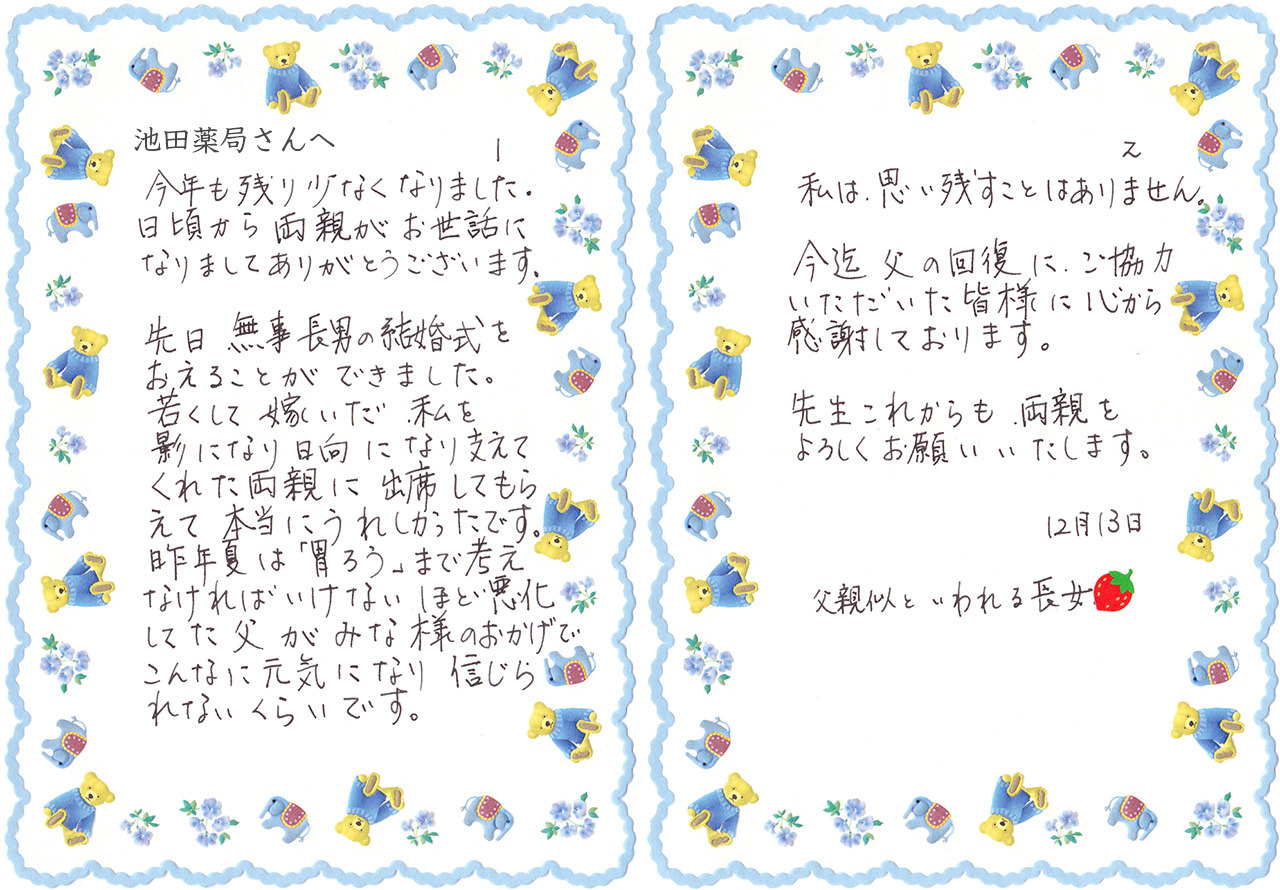 池田薬局さんへ
1
今年も残り少なくなりました。
日頃から両親がお世話に
なりましてありがとうございます。
先日 無事長男の結婚式を
おえることができました。
若くして嫁いだ 私を
影になり日向になり支えて
くれた両親に 出席してもら
えて 本当にうれしかったです。
昨年夏は「胃ろう」まで考え
なければいけないほど悪化
してた父がみな様のおかげで
こんなに元気になり 信じら
れないくらいです。
2
私は、思い残すことはありません。
今迄 父の回復に、ご協力
いただいた皆様に心から
感謝しております。
先生これからも、両親を
よろしくお願いいたします。
12月13日
父親似といわれる長女